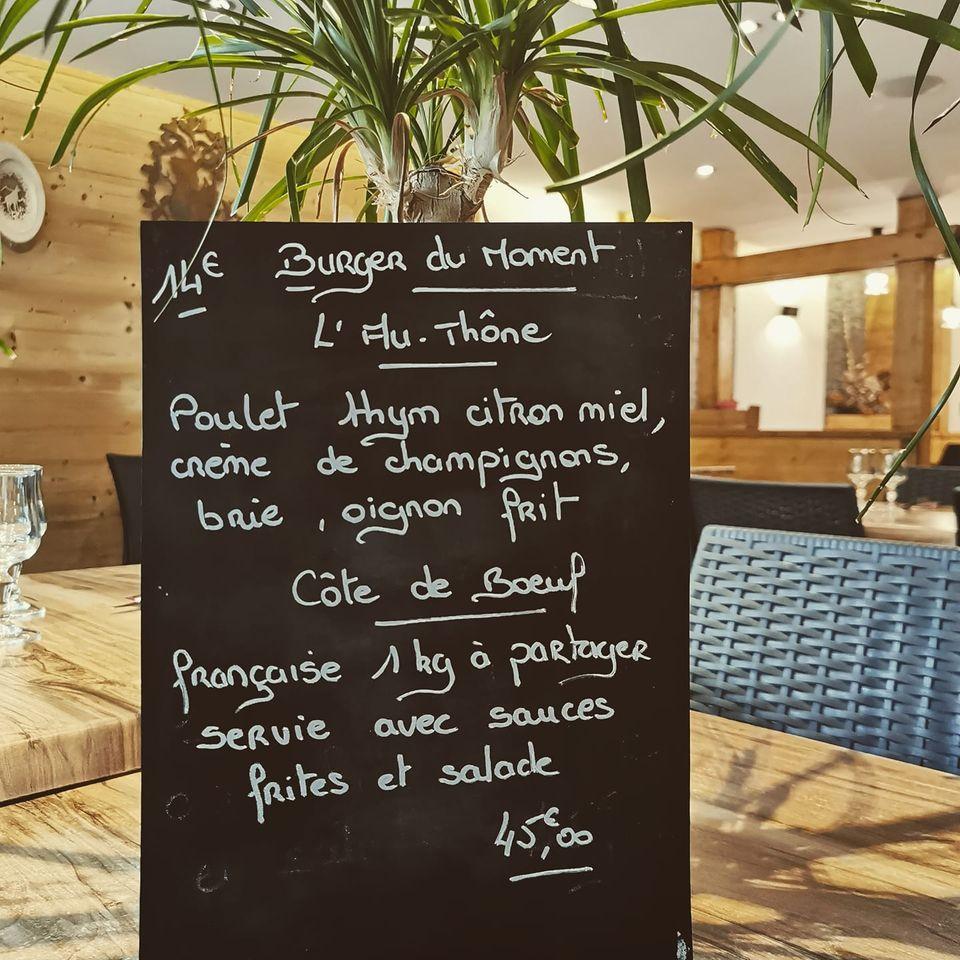 14€ Burger du Moment
L' Au.Thône
Poulet thym citron miel,
crème de champignons,
brie, oignon frit
Côte de Boeuf
française 1 kg à partager
servie avec sauces
frites et salade
45,€00